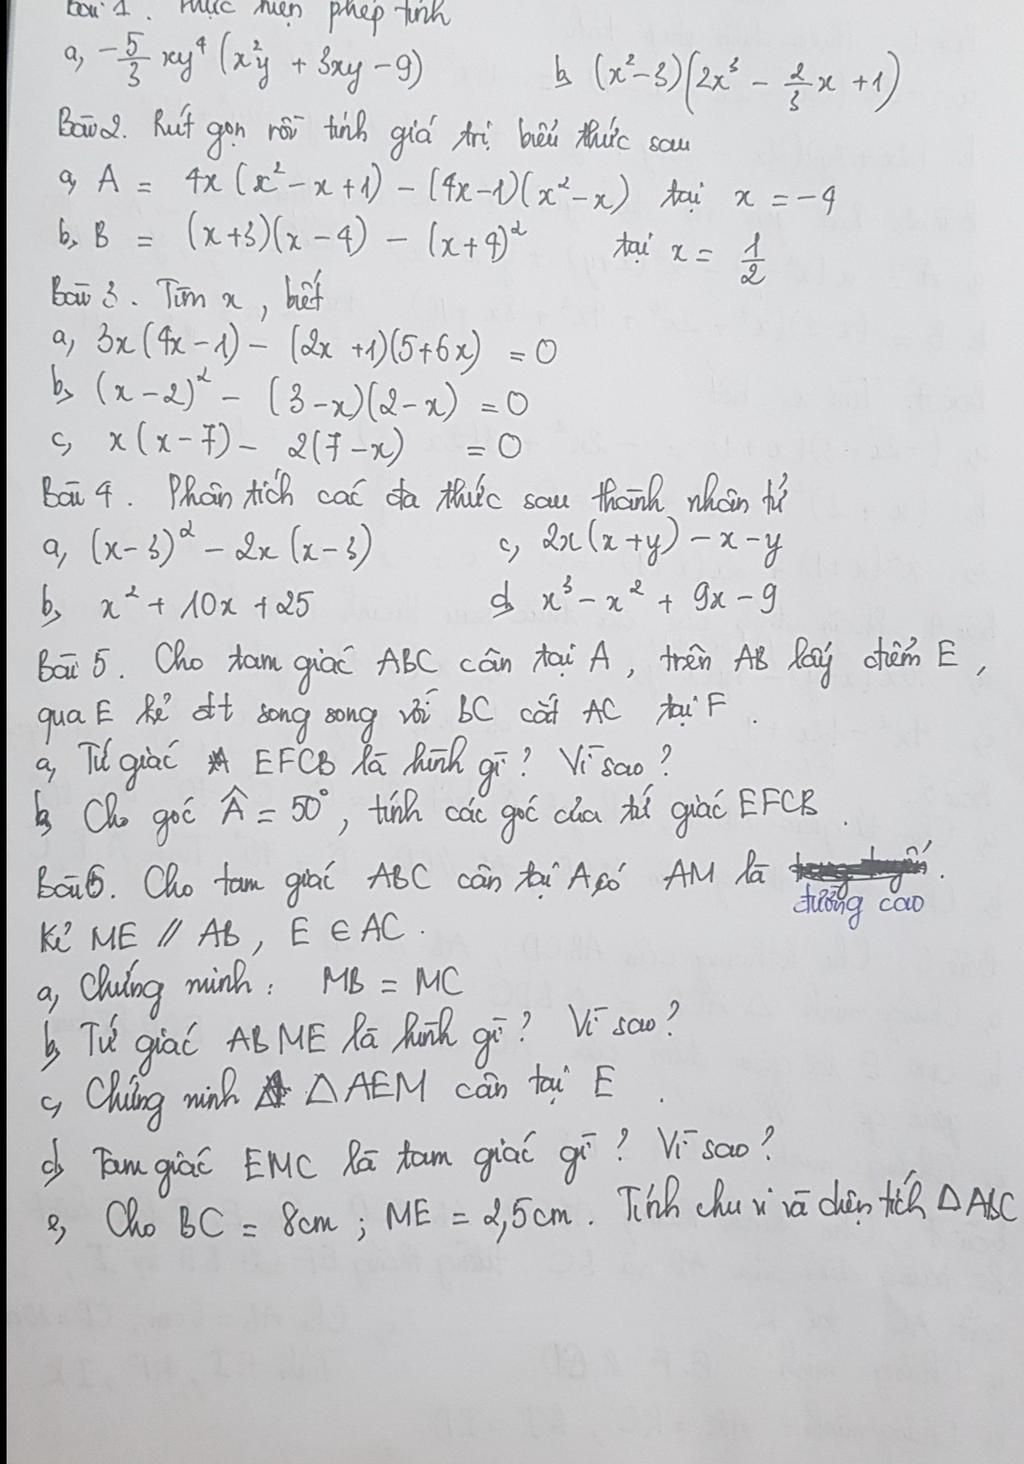 Bài 1. Thực hiện phép tính
a, -5/3 xy⁴ (x²y + 3xy - 9) b, (x² - 3)(2x³ - 2/3 x + 1)
Bài 2. Rút gọn rồi tính giá trị biểu thức sau
a, A = 4x (x² - x + 1) - (4x - 1)(x² - x) tại x = -4
b, B = (x + 3)(x - 4) - (x + 4)² tại x = 1/2
Bài 3. Tìm x, biết
a, 3x (4x - 1) - (2x + 1)(5 + 6x) = 0
b, (x - 2)² - (3 - x)(2 - x) = 0
c, x (x - 7) - 2(7 - x) = 0
Bài 4. Phân tích các đa thức sau thành nhân tử
a, (x - 3)² - 2x (x - 3) c, 2x (x + y) - x - y
b, x² + 10x + 25 d, x³ - x² + 9x - 9
Bài 5. Cho tam giác ABC cân tại A, trên AB lấy điểm E,
qua E kẻ đt song song với BC cắt AC tại F.
a, Tứ giác EFCB là hình gì? Vì sao?
b, Cho góc Â = 50°, tính các góc của tứ giác EFCB.
Bài 6. Cho tam giác ABC cân tại A, có AM là đường cao.
Kẻ ME // AB, E ∈ AC.
a, Chứng minh: MB = MC
b, Tứ giác ABME là hình gì? Vì sao?
c, Chứng minh △AEM cân tại E.
d, Tam giác EMC là tam giác gì? Vì sao?
e, Cho BC = 8cm; ME = 2,5cm. Tính chu vi và diện tích △ABC